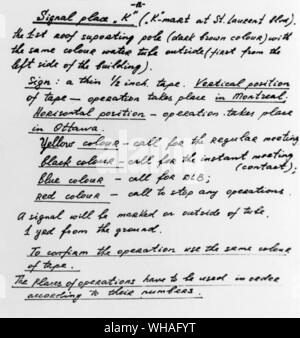 -2-
Signal place "K" (K-mart at St. Laurent Blvd).
the 1st roof suporting pole (dark brown colour) with
the same colour water tube outside (first from the
left side of the building).
Sign: a thin 1/2 inch. tape. Vertical position
of tape — operation takes place in Montreal;
Horisontal position — operation takes place
in Ottawa.
Yellow colour — call for the regular meeting
black colour — call for the instant meeting
(contact);
blue colour — call for DLB;
red colour — call to stop any operations.
A signal will be marked on outside of tube.
1 yed from the ground.
To confirm the operation use the same colour
of tape.
The places of operations have to be used in order
according to their numbers.
alamy
Image ID: WHAFYT
www.alamy.com